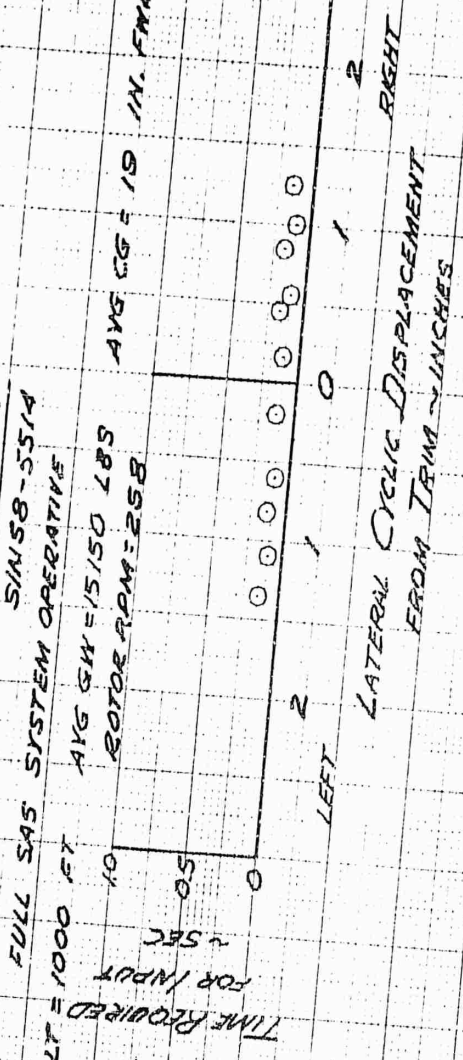 S/N 58-5514
FULL SAS SYSTEM OPERATIVE
LT = 1000 FT AVG GW = 15150 LBS AVG CG = 19 IN. FW
ROTOR RPM = 258
TIME REQUIRED
FOR INPUT
~ SEC
1.0
0.5
0
2 1 0 1 2
LEFT RIGHT
LATERAL CYCLIC DISPLACEMENT
FROM TRIM ~ INCHES